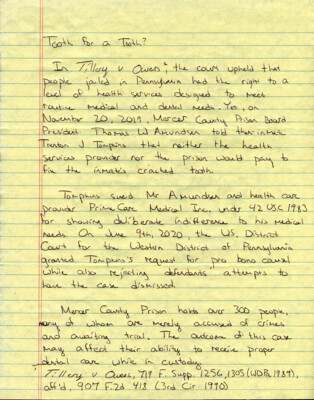 Tooth for a Tooth?
In Tillery v. Owens*, the court upheld that
people jailed in Pennsylvania had the right to a
level of health services designed to meet
routine medical and dental needs. Yet, on
November 20, 2019, Mercer County Prison Board
President Thomas W Amundsen told then inmate
Trenton J Tompkins that neither the health
services provider nor the prison would pay to
fix the inmate's cracked tooth.
Tompkins sued Mr Amundsen and health care
provider PrimeCare Medical Inc, under 42 USC 1983
for showing deliberate indifference to his medical
needs. On June 9th, 2020, the U.S. District
Court for the Western District of Pennsylvania
granted Tompkins's request for pro bono counsel
while also rejecting defendants' attempts to
have the case dismissed.
Mercer County Prison holds over 300 people,
many of whom are merely accused of crimes
and awaiting trial. The outcome of this case
may affect their ability to receive proper
dental care while in custody.
Tillery v. Owens, 719 F. Supp. 1256, 1305 (WDPa. 1989),
aff'd, 907 F.2d 418 (3rd Cir. 1990)